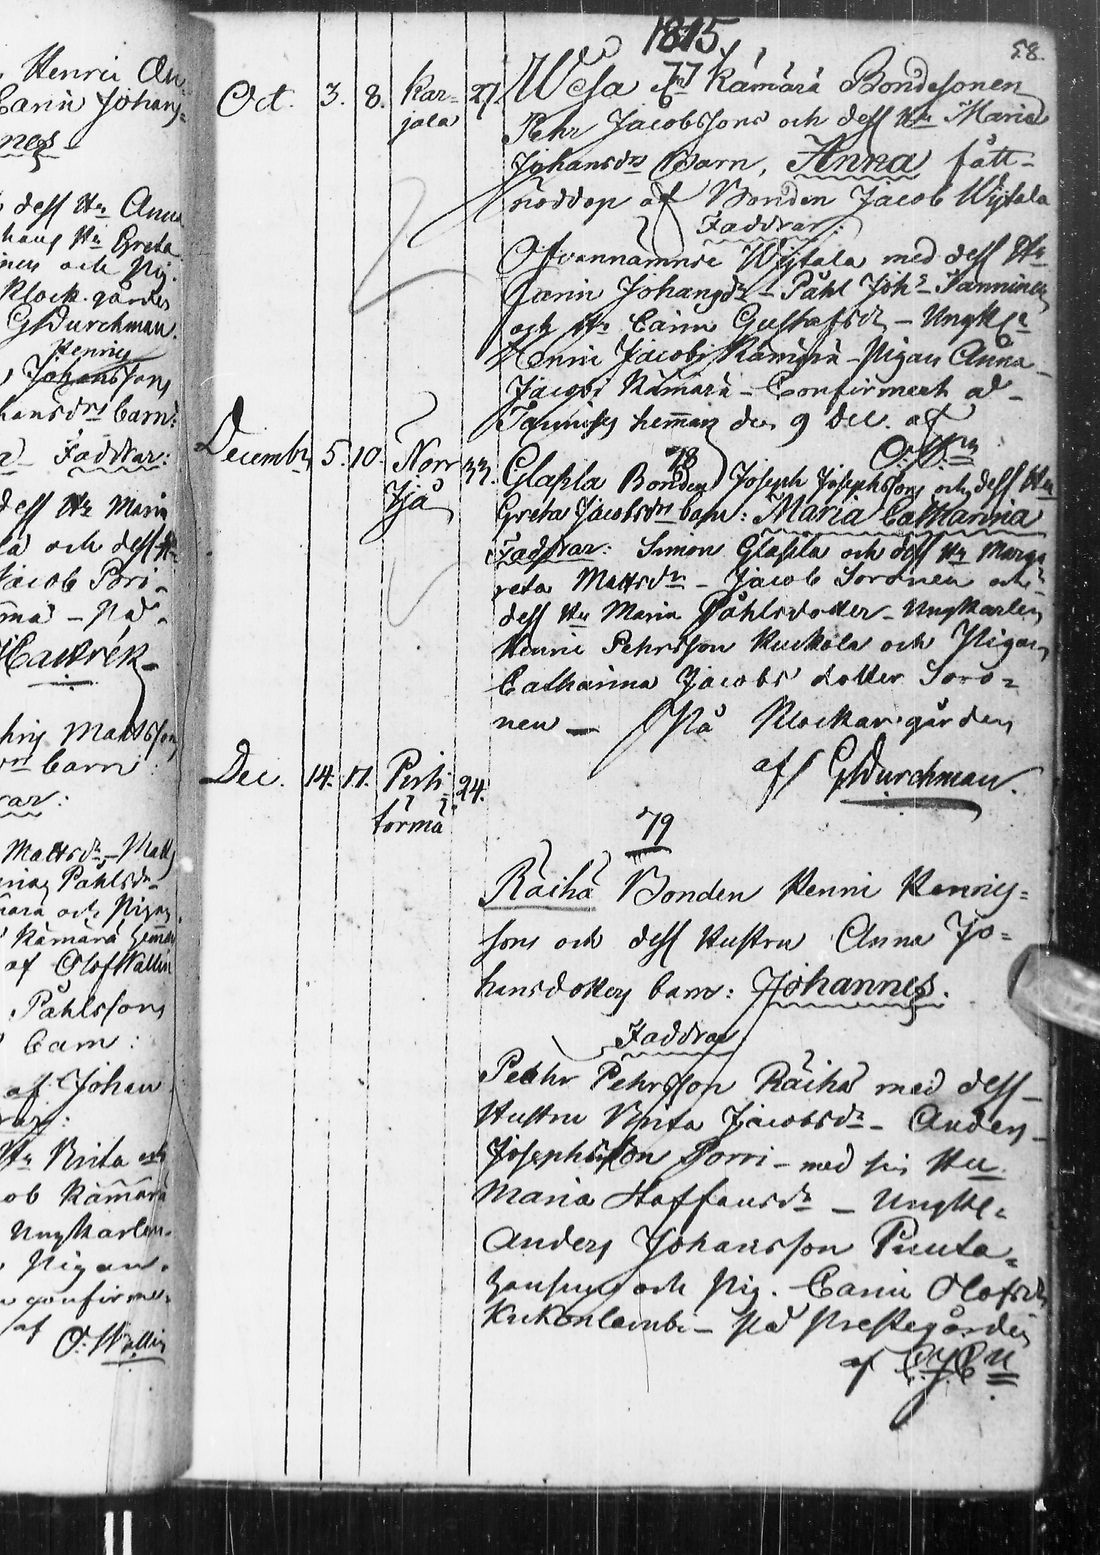 1815.
58.
Henric An-
Carin Johans
nes
dess Hu Anna
hans Hu Greta
och Pig.
Klock. gården
GWDurchman.
Henrics
Johanssons
hansdrs barn:
Faddrar:
dess Hu Maria
la och dess Hu
Jacob Pori-
mä - På
Cajanék
Mattsson
barn:
rar:
Mattsdr - Matts
Påhlsdr
märä och Pigan
Kämärä hemman
af Olof Wallin
Påhlssons
barn:
af Johan
rar:
Hu Brita och
ob Kämärä
Ungkarlen
Pigan
confirme-
af
O: Wallin
Oct. 3. 8. Kar- 27.
jala
77
Wesa Kämärä Bondesonen
Pehr Jacobssons och dess Hu Maria
Johansdrs Barn, Anna fått
nöddop af Bonden Jacob Wijtala
Faddrar:
Ofvannämnde Wijtala med dess Hu
Carin Johansdr - Påhl Joh: Janninen
och Hu Carin Gustafsdr - Ungkln
Henric Jacobs Kämärä - Pigan Anna
Jacobs Kämärä - Confirmerat å
hemman den 9 Dec. af
O. Wn
Decembr 5. 10. Norr 33.
sjå
78
Glassla Bonden Joseph Josephssons och dess Hu
Greta Jacobsdrs barn: Maria Catharina
Faddrar: Simon Glassla och dess Hu Marga
reta Mattsdr - Jacob Soronen och
dess Hu Maria Påhlsdotter - Ungkarlen
Henric Pehrsson Kuckola och Pigan
Catharina Jacobs dotter Soro=
nen - På Klockaregården
af GWDurchman.
Dec. 14. 17. Perti- 24.
torma
79
Räihä Bonden Henric Henrics=
sons och dess Hustru Anna Jo=
hansdotters barn: Johannes.
Faddrar
Petthr Pehrsson Räihä med dess
Hustru Brita Jacobsdr - Anders
Josephsson Porri - med sin Hu
Maria Staffansdr - Ungkl.
Anders Johansson Puuta=
och Pig. Carin Olofsdr
Kukonlambi - På Prestegården
af